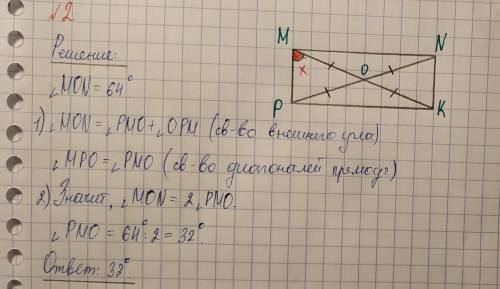 №2
Решение:
∠MON = 64°
1) ∠MON = ∠PMO + ∠OPM (св-во внешнего угла)
∠MPO = ∠PMO (св-во диагоналей прямоуг)
2) Значит, ∠MON = 2∠PMO.
∠PMO = 64° : 2 = 32°.
Ответ: 32°.
M N
x O
P K